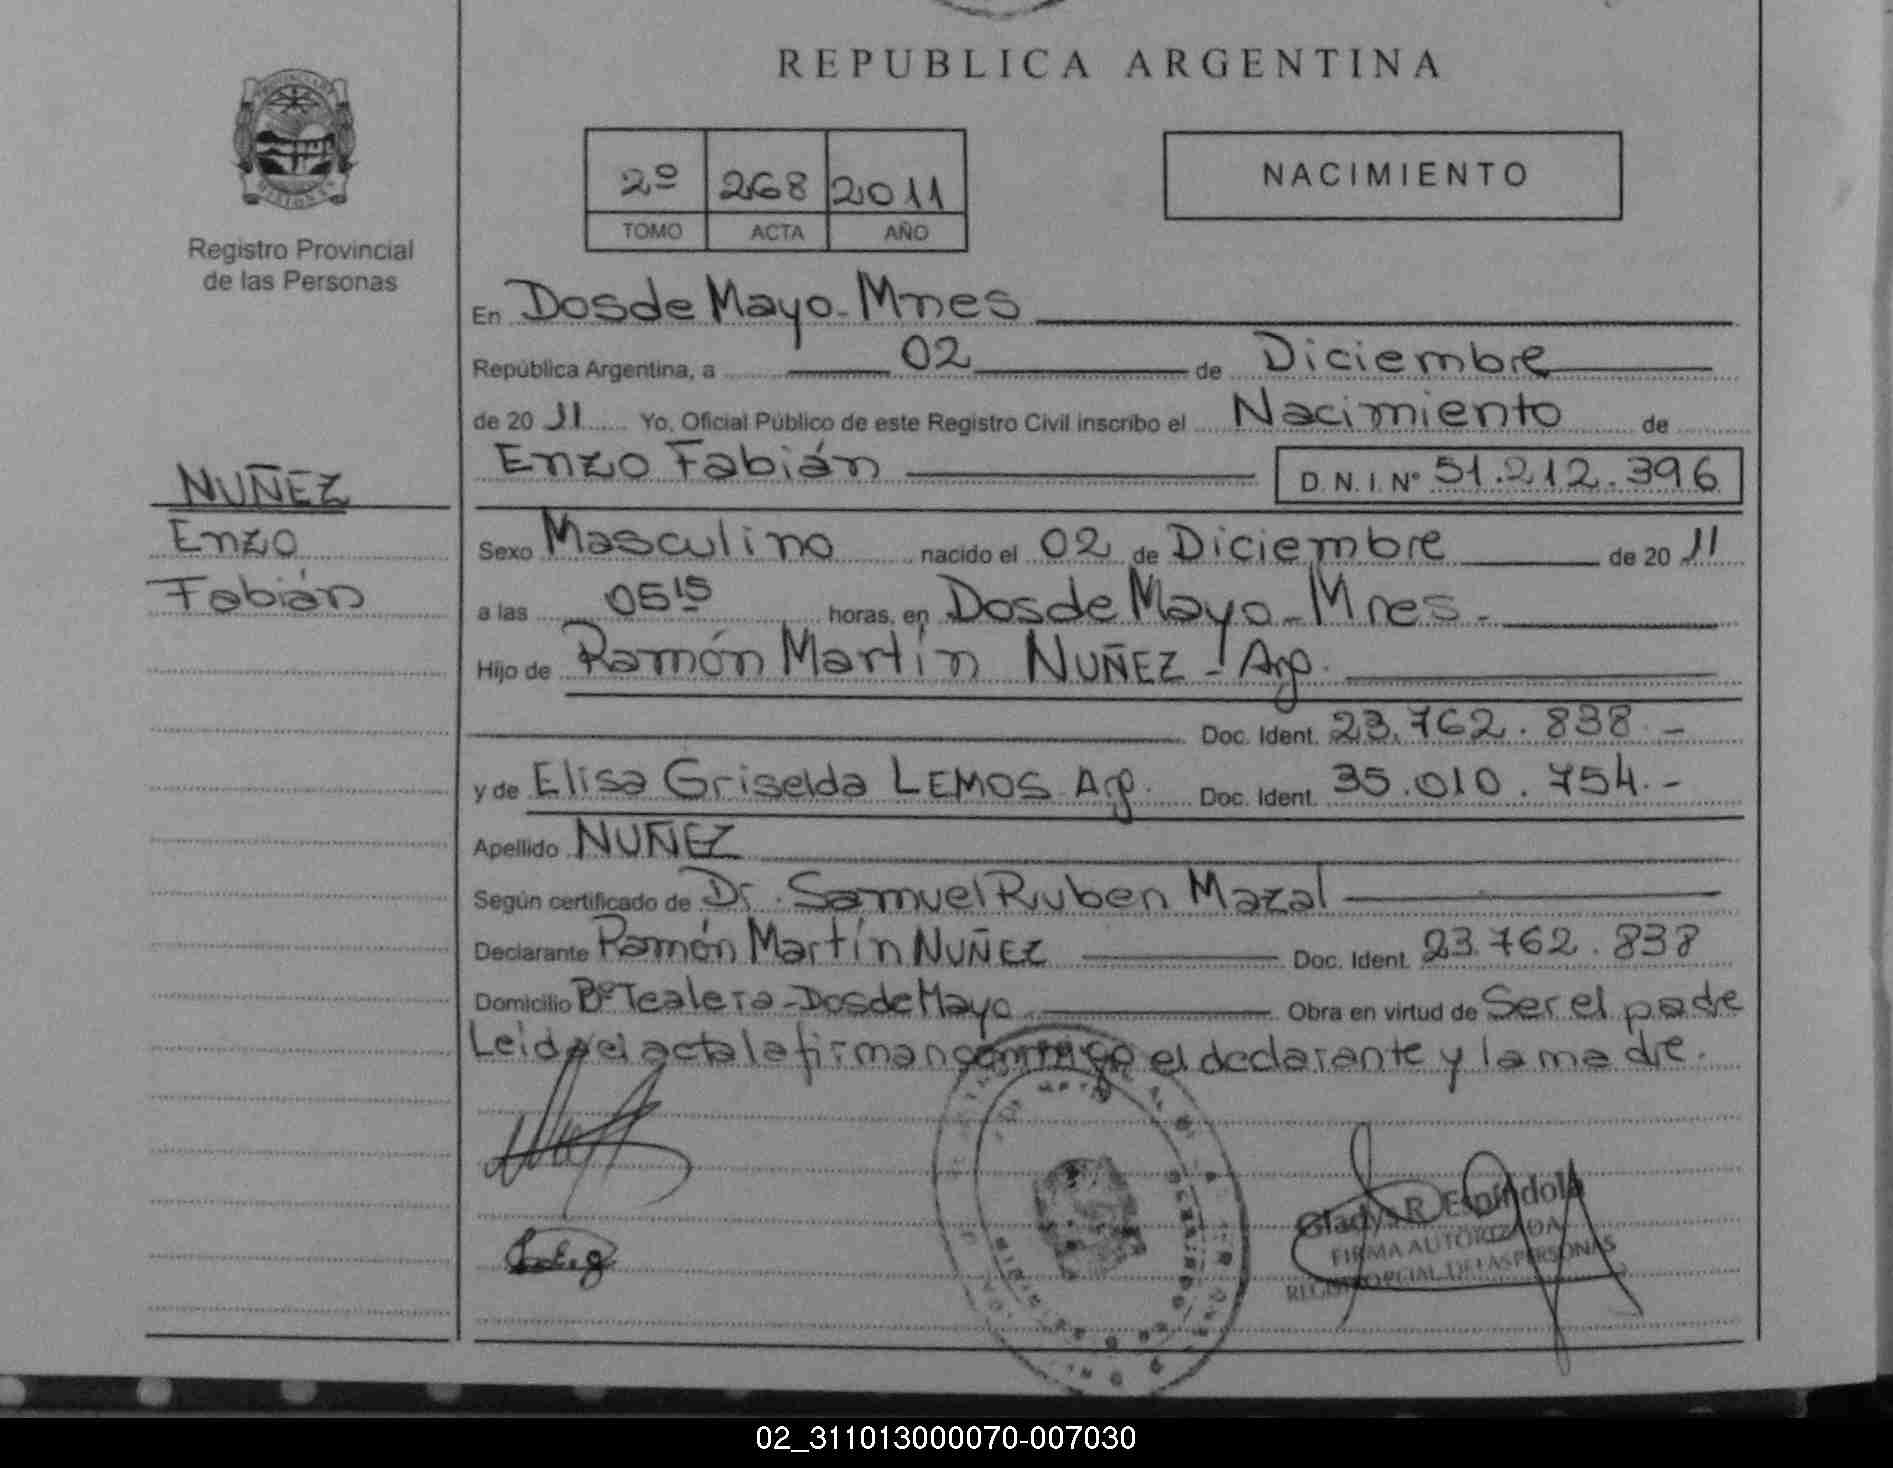 REPUBLICA ARGENTINA
2º 268 2011
TOMO ACTA AÑO
NACIMIENTO
Registro Provincial
de las Personas
NUÑEZ
Enzo
Fabián
En Dos de Mayo - Mnes
República Argentina, a 02 de Diciembre
de 20 11 Yo, Oficial Público de este Registro Civil inscribo el Nacimiento de
Enzo Fabián D.N.I. Nº 51.212.396
Sexo Masculino nacido el 02 de Diciembre de 20 11
a las 05 15 horas, en Dos de Mayo - Mnes -
Hijo de Ramón Martín NUÑEZ - Arg.
Doc. Ident. 23.762.838.-
y de Elisa Griselda LEMOS Arg. Doc. Ident. 35.010.754.-
Apellido NUÑEZ
Según certificado de Dr. Samuel Ruben Mazal
Declarante Ramón Martín NUÑEZ Doc. Ident. 23.762.838
Domicilio Bº Tealera - Dos de Mayo Obra en virtud de Ser el padre
Leida el acta la firman conmigo el declarante y la madre.
Gladys R. Espíndola
FIRMA AUTORIZADA
REGISTRO PCIAL. DE LAS PERSONAS
02_311013000070-007030